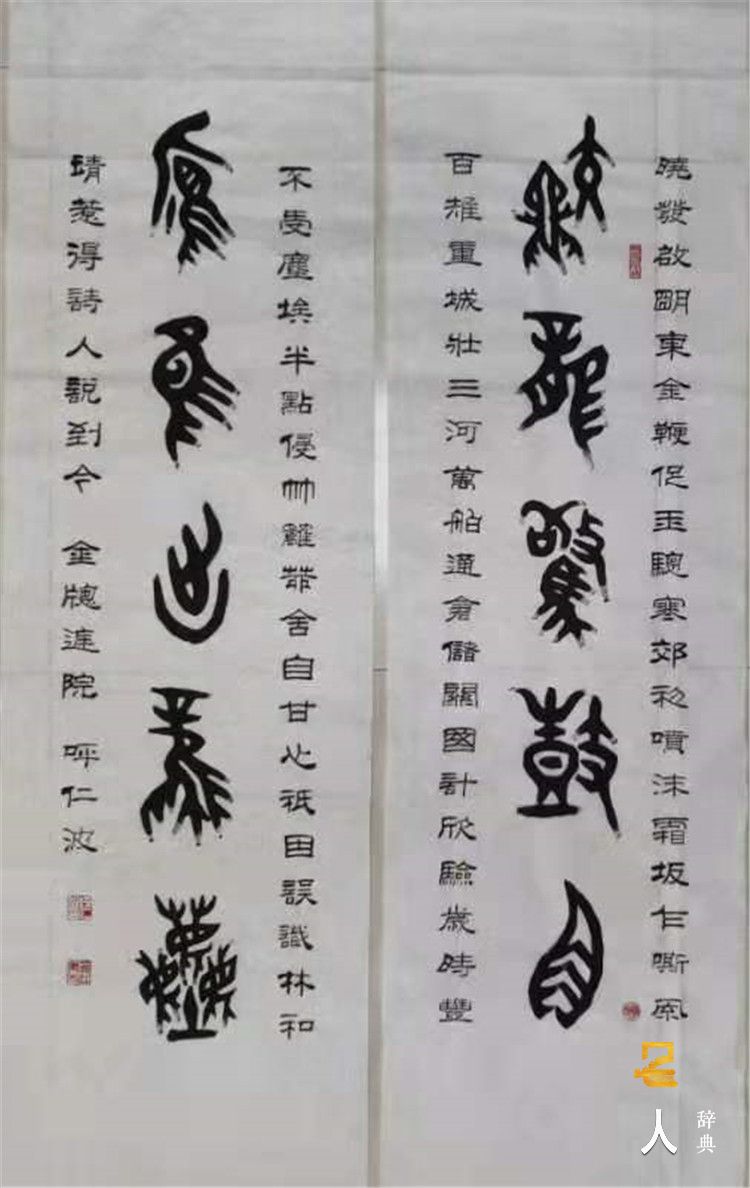 曉發啟明東金鞭促玉驄寒郊初噴沫霜坂乍嘶風
龍驚鼓角
百雉重城壯三河萬舶通倉儲關國計欣驗歲時豐
不受塵埃半點侵竹籬茅舍自甘心祇因誤識林和
靖惹得詩人說到今 金牕蓮院 呼仁波
人 辞典